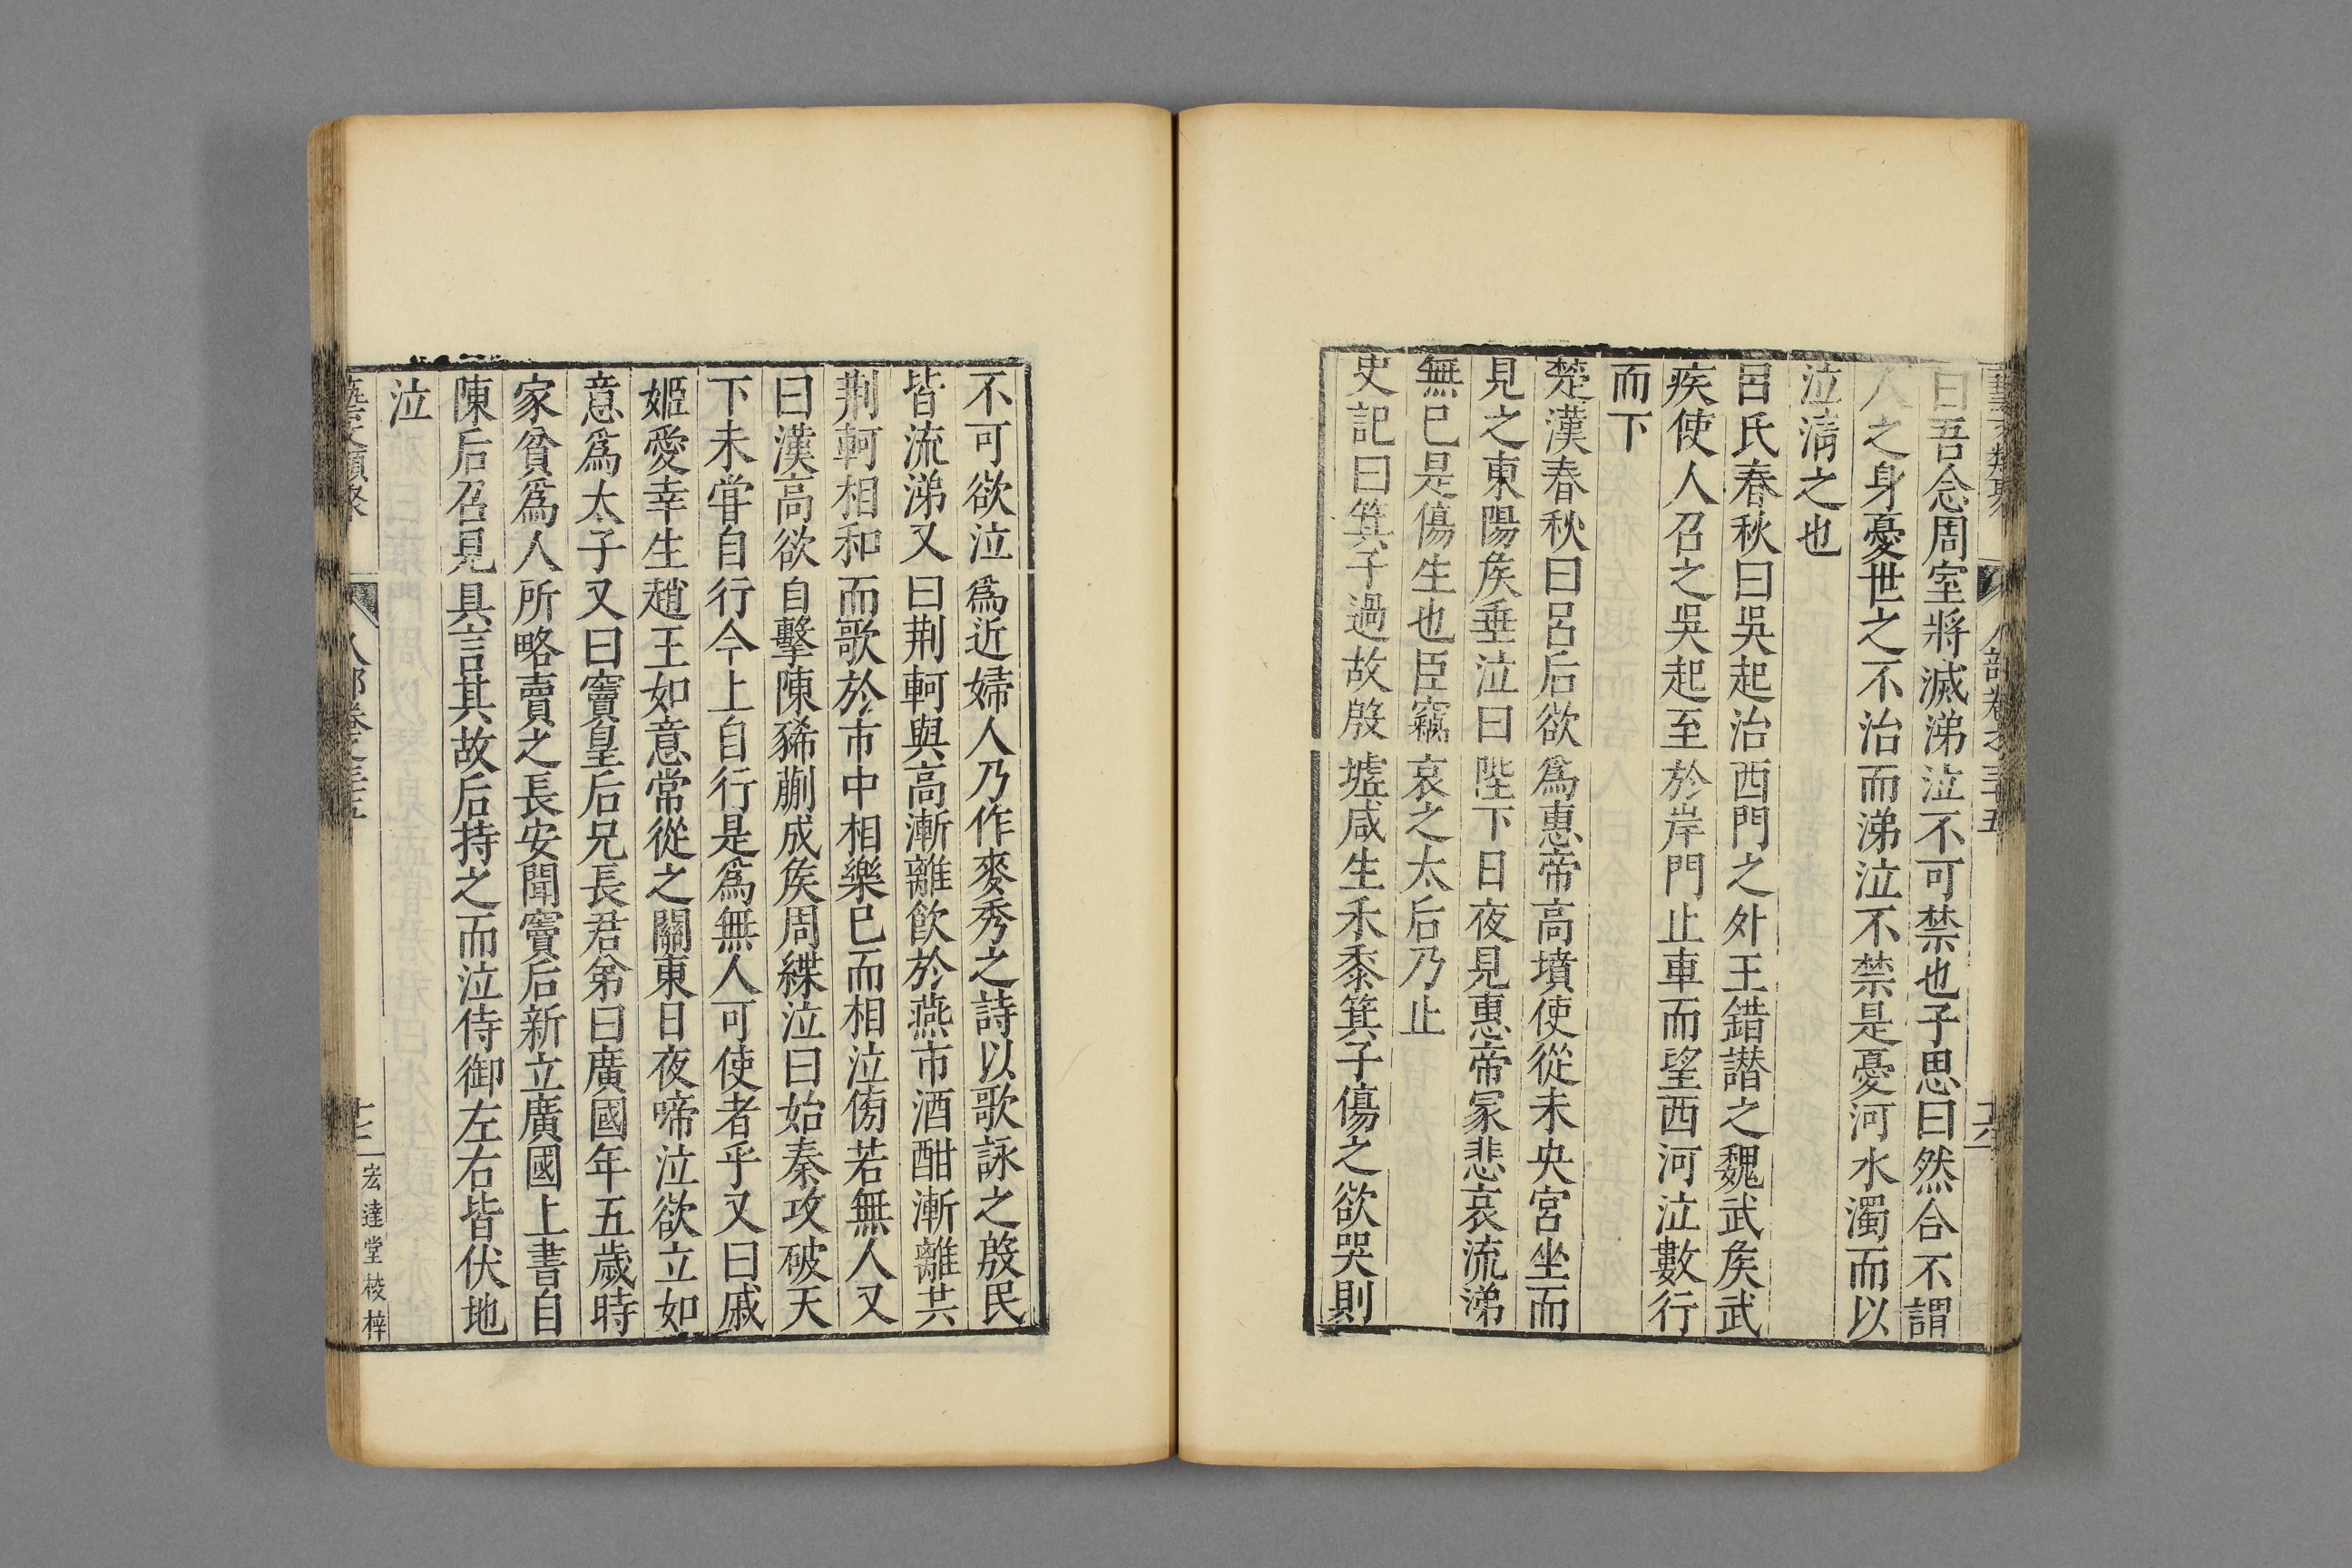 曰吾念周室將滅涕泣不可禁也子思曰然合不謂
人之身憂世之不治而涕泣不禁是憂河水濁而以
泣清之也
呂氏春秋曰吳起治西門之外王錯譖之魏武矦武
疾使人召之吳起至於岸門止車而望西河泣數行
而下
楚漢春秋曰呂后欲爲惠帝高墳使從未央宮坐而
見之東陽矦垂泣曰陛下日夜見惠帝冡悲哀流涕
無已是傷生也臣竊哀之太后乃止
史記曰箕子過故殷墟咸生禾黍箕子傷之欲哭則
不可欲泣爲近婦人乃作麥秀之詩以歌詠之殷民
皆流涕又曰荆軻與高漸離飲於燕市酒酣漸離共
荆軻相和而歌於市中相樂已而相泣傍若無人又
曰漢高欲自擊陳豨蒯成矦周緤泣曰始秦攻破天
下未甞自行今上自行是爲無人可使者乎又曰戚
姬愛幸生趙王如意常從之關東日夜啼泣欲立如
意爲太子又曰竇皇后兄長君弟曰廣國年五歲時
家貧爲人所略賣之長安聞竇后新立廣國上書自
陳后召見具言其故后持之而泣侍御左右皆伏地
泣
宏達堂校梓